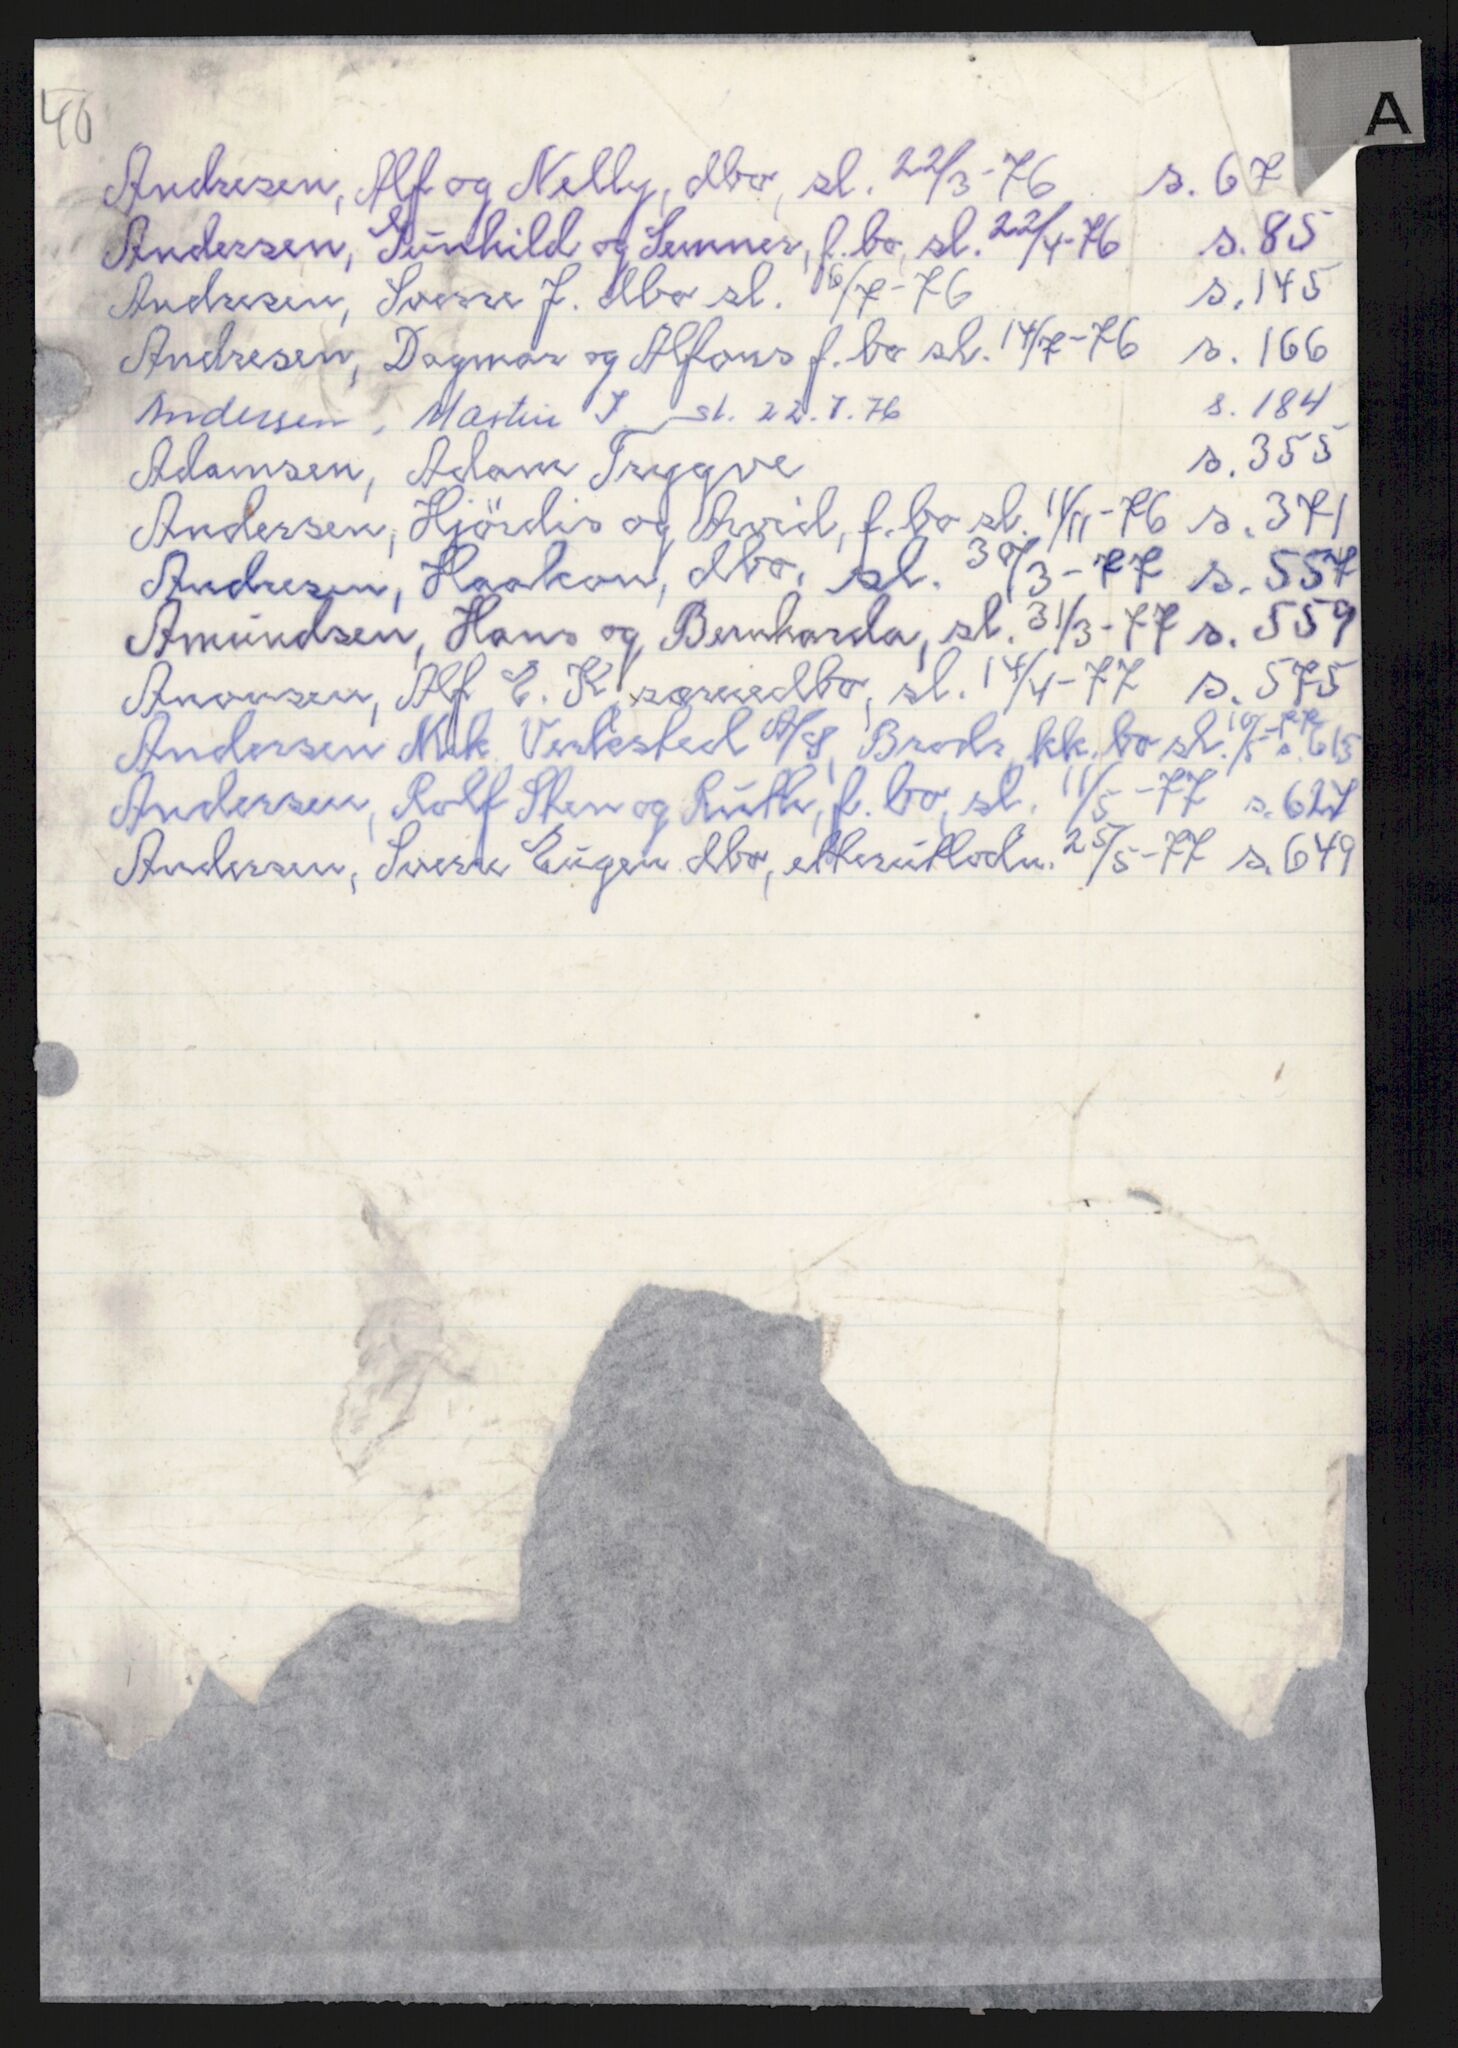 A
40
Andresen, Alf og Nelly, dbo, sl. 22/3-76 s. 67
Andersen, Gunhild og Semner, f.bo, sl. 22/4-76 s. 85
Andresen, Sverre J. dbo sl. 6/7-76 s. 145
Andresen, Dagmar og Alfons f. bo sl. 14/7-76 s. 166
Andersen, Martin J. sl. 22.7.76 s. 184
Adamsen, Adam Tryggve s. 355
Andersen, Hjördis og Arvid, f. bo sl. 11/11-76 s. 371
Andresen, Haakon, dbo, sl. 30/3-77 s. 557
Amundsen, Hans og Bernharda, sl. 31/3-77 s. 559
Anonsen, Alf E. K. særniedbo, sl. 14/4-77 s. 575
Andersen Mek. Verksted A/S, Brødr. kk. bo sl. 10/5-77 s. 615
Andersen, Rolf Sten og Ruth, f. bo, sl. 11/5-77 s. 627
Andersen, Sverre Eugen dbo, etterutlodn. 25/5-77 s. 649